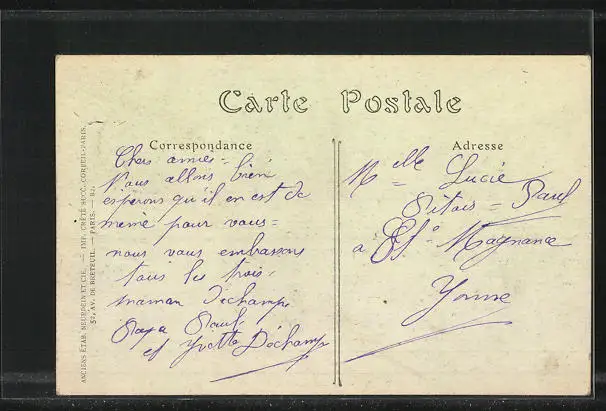 Carte Postale
Correspondance
Chers amies =
Nous allons bien
esperons qu'il en est de
meme pour vous =
nous vous embrassons
tous les trois.
maman Déchamp
Papa Paul
et Yvette Déchamp
Adresse
Melle Lucie
Pitois = Paul
a Magnance
Yonne
ANCIENS ÉTAB. NEURDEIN ET CIE. — IMP. CRÉTÉ SUCC. CORBEIL-PARIS.
52, AV. DE BRETEUIL. — PARIS. — 82.